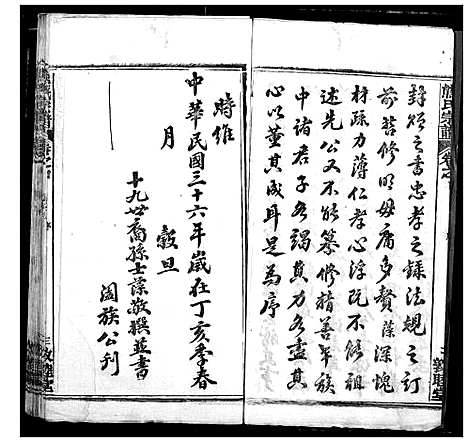 封贈之書忠孝之錄法規之訂
前哲修明毋庸多贅藻深愧
材疏力薄仁孝心浮既不能祖
述先公又不能纂修猶善年族
中諸君子各竭其力各盡其
心以董其成耳是為序
時維
中華民國三十六年歲在丁亥季春
月 穀旦
十九世裔孫士藻敬撰並書
闔族公刊
氏宗譜